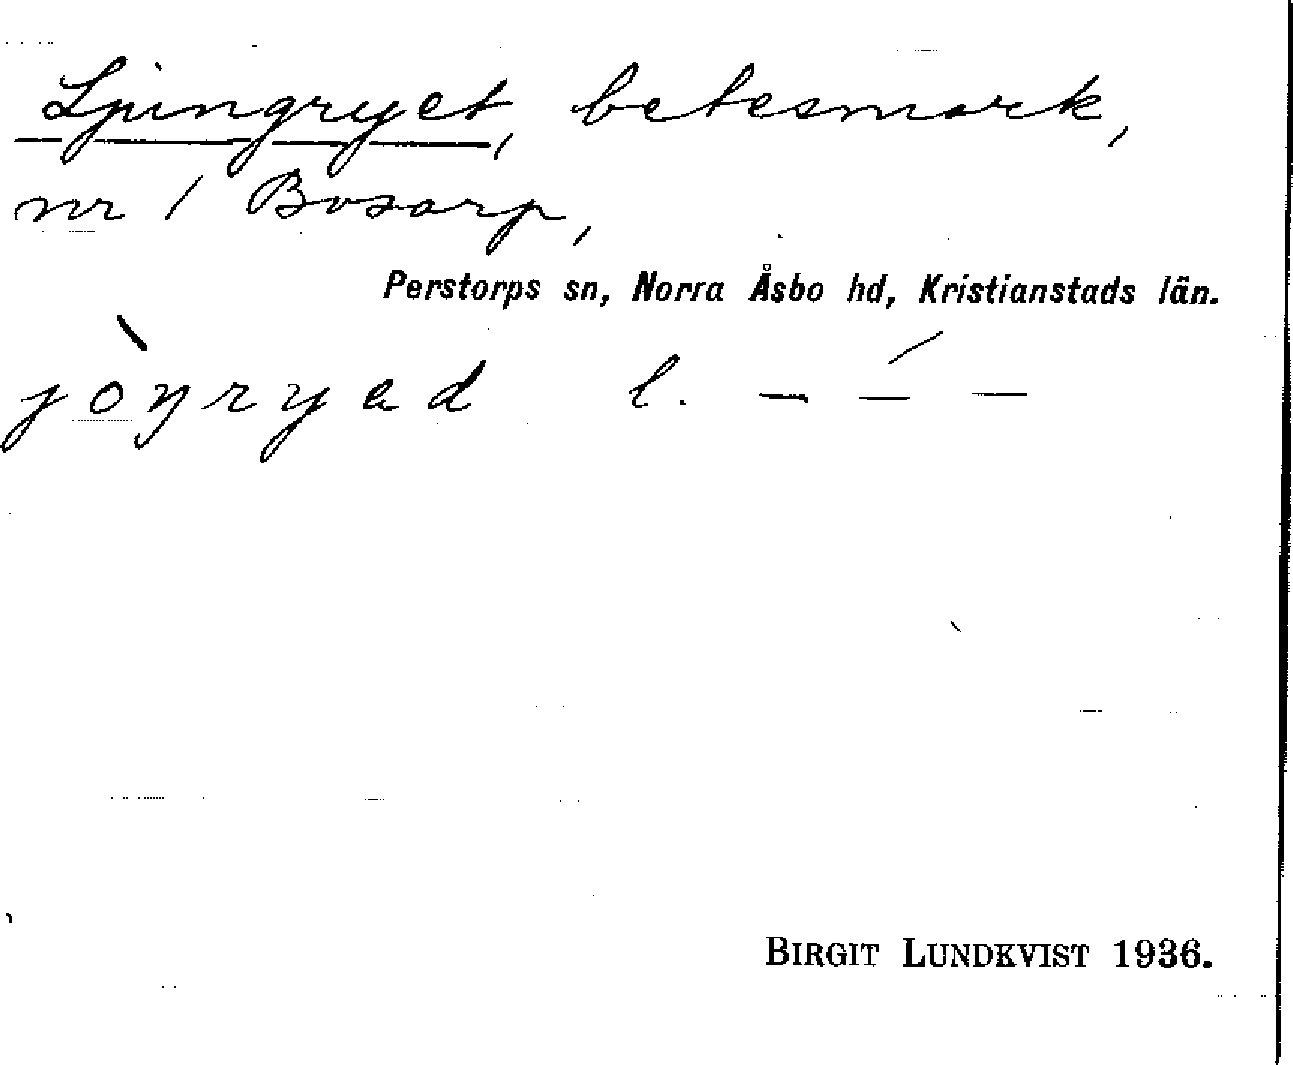 Ljungryet, betesmark,
nr 1 Bosarp,
Perstorps sn, Norra Åsbo hd, Kristianstads län.
jòŋryəd l. – –́ –
BIRGIT LUNDKVIST 1936.